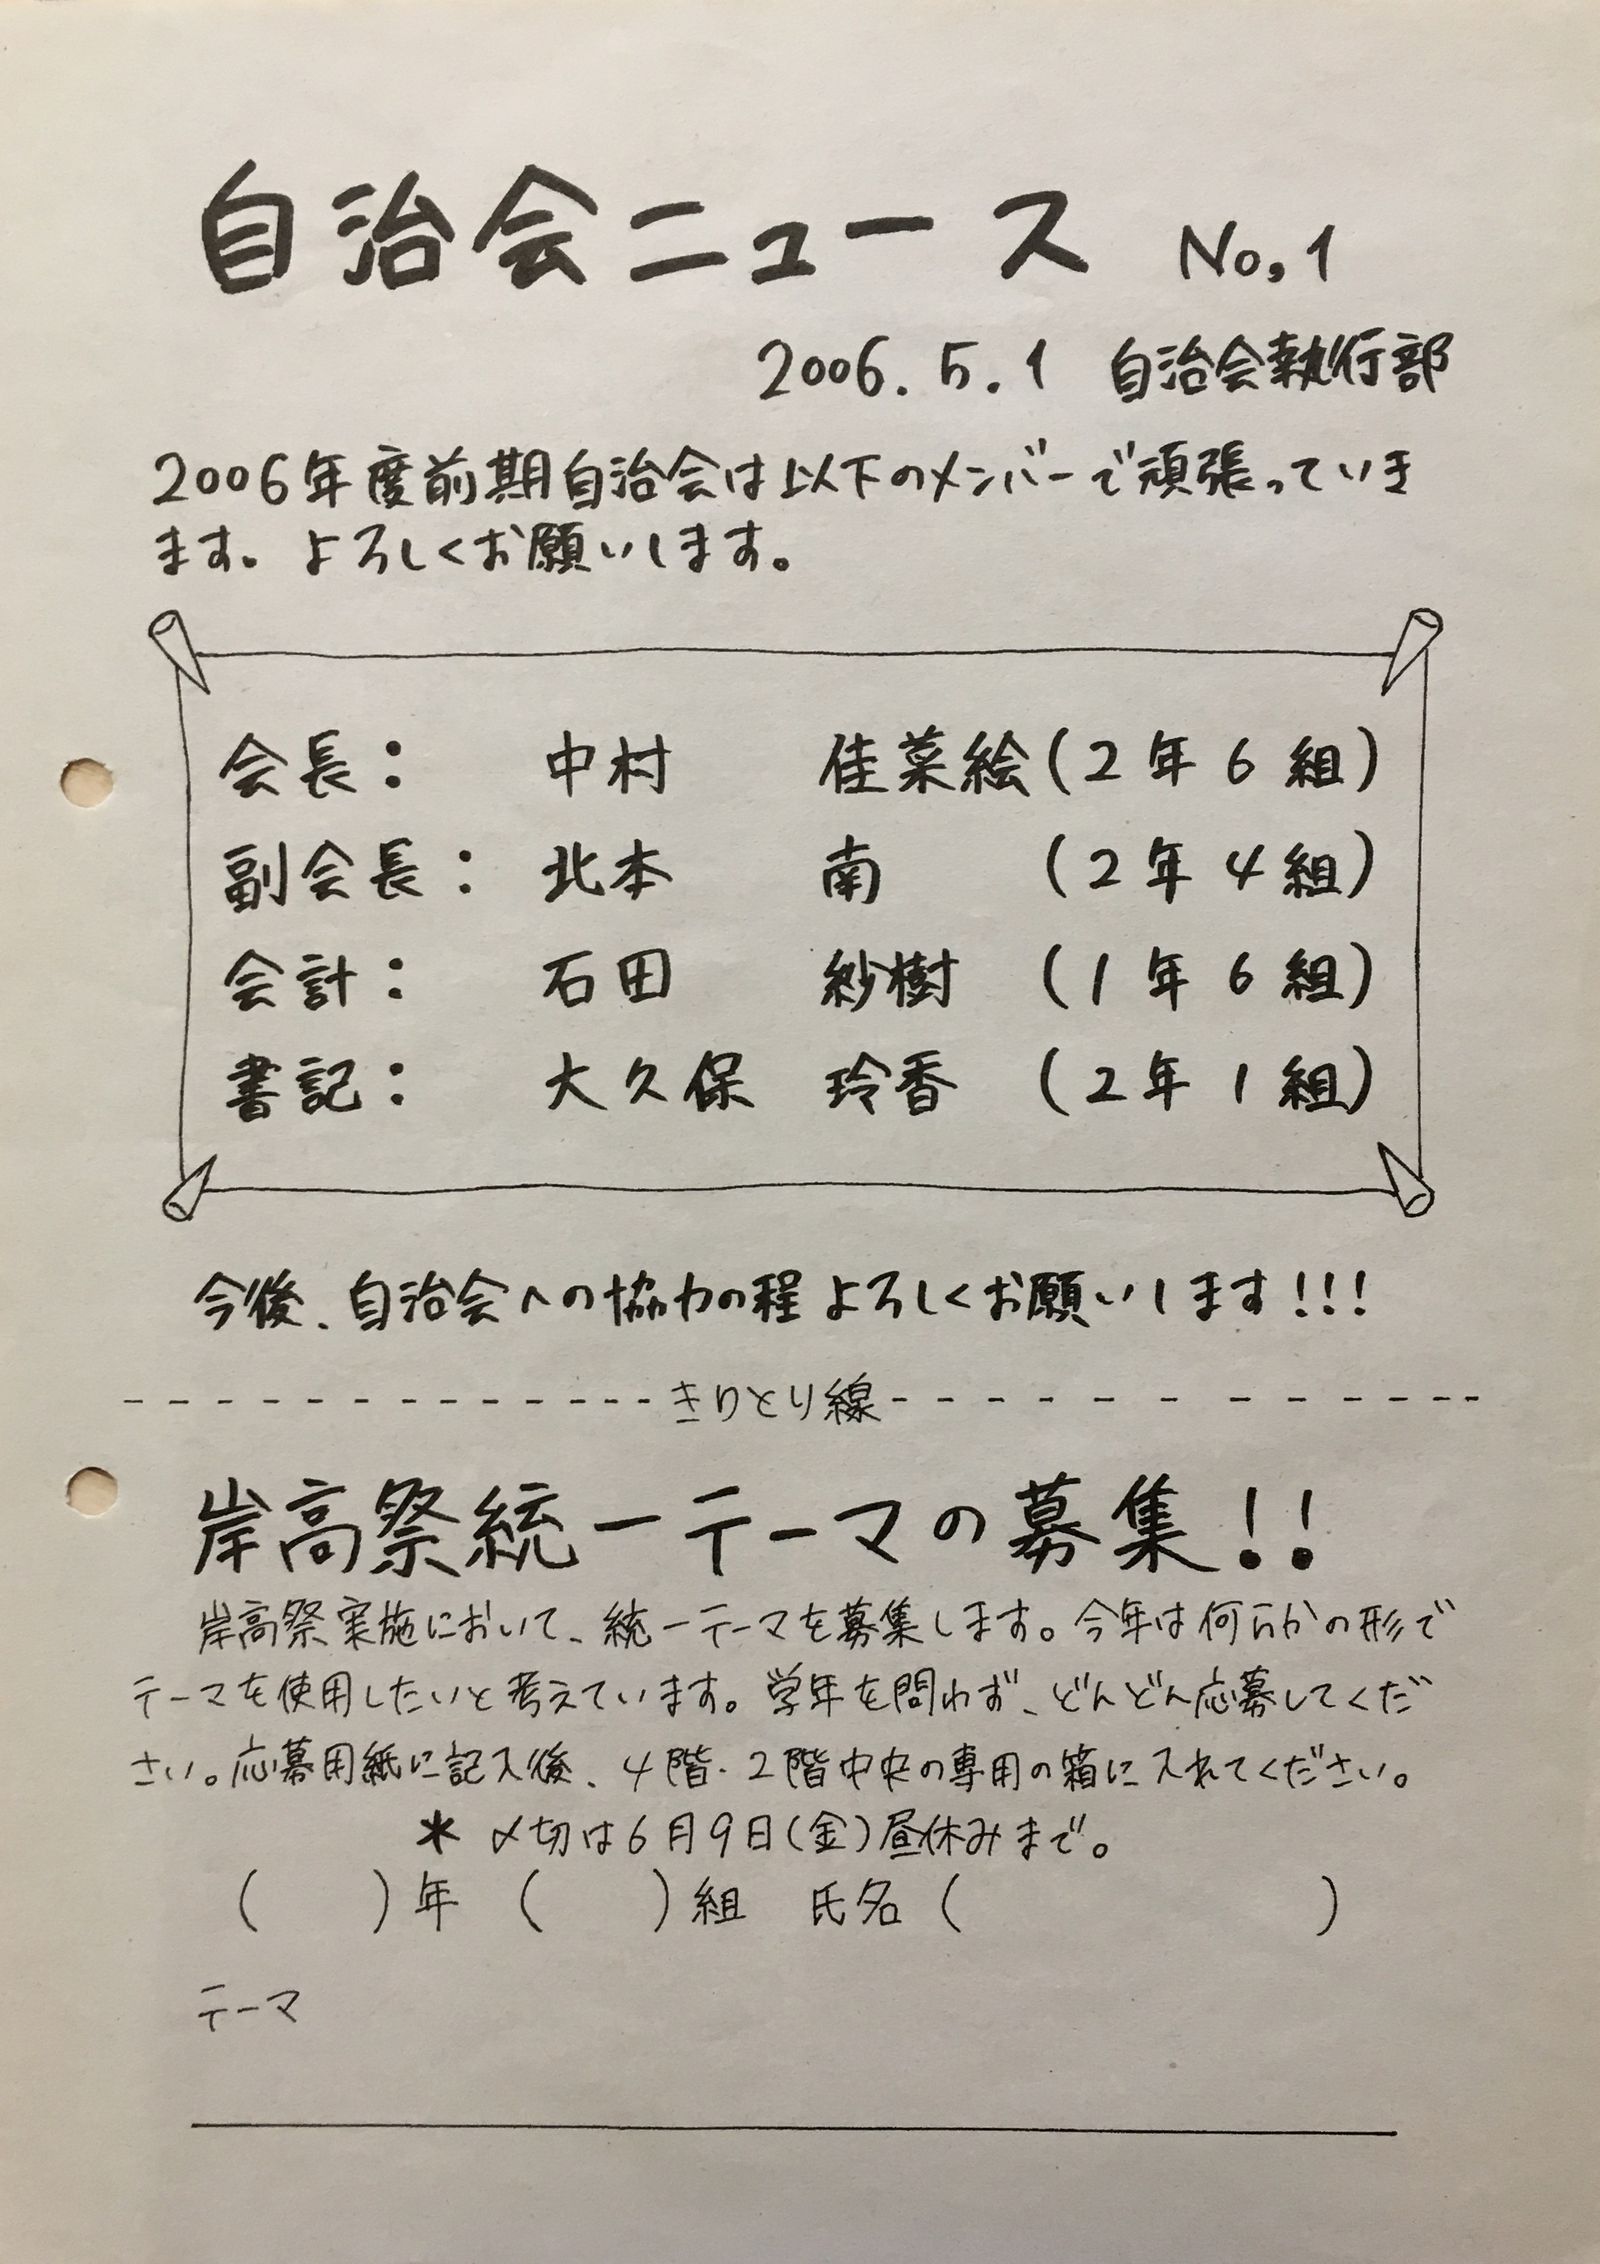 自治会ニュース No,1
2006.5.1 自治会執行部
2006年度前期自治会は以下のメンバーで頑張っていき
ます。よろしくお願いします。
会長： 中村 佳菜絵（2年6組）
副会長： 北本 南 （2年4組）
会計： 石田 紗樹 （1年6組）
書記： 大久保 玲香 （2年1組）
今後、自治会への協力の程よろしくお願いします!!!
きりとり線
岸高祭統一テーマの募集!!
岸高祭実施において、統一テーマを募集します。今年は何らかの形で
テーマを使用したいと考えています。学年を問わず、どんどん応募してくだ
さい。応募用紙に記入後、4階・2階中央の専用の箱に入れてください。
＊ 〆切は6月9日(金)昼休みまで。
（ ）年 （ ）組 氏名（ ）
テーマ